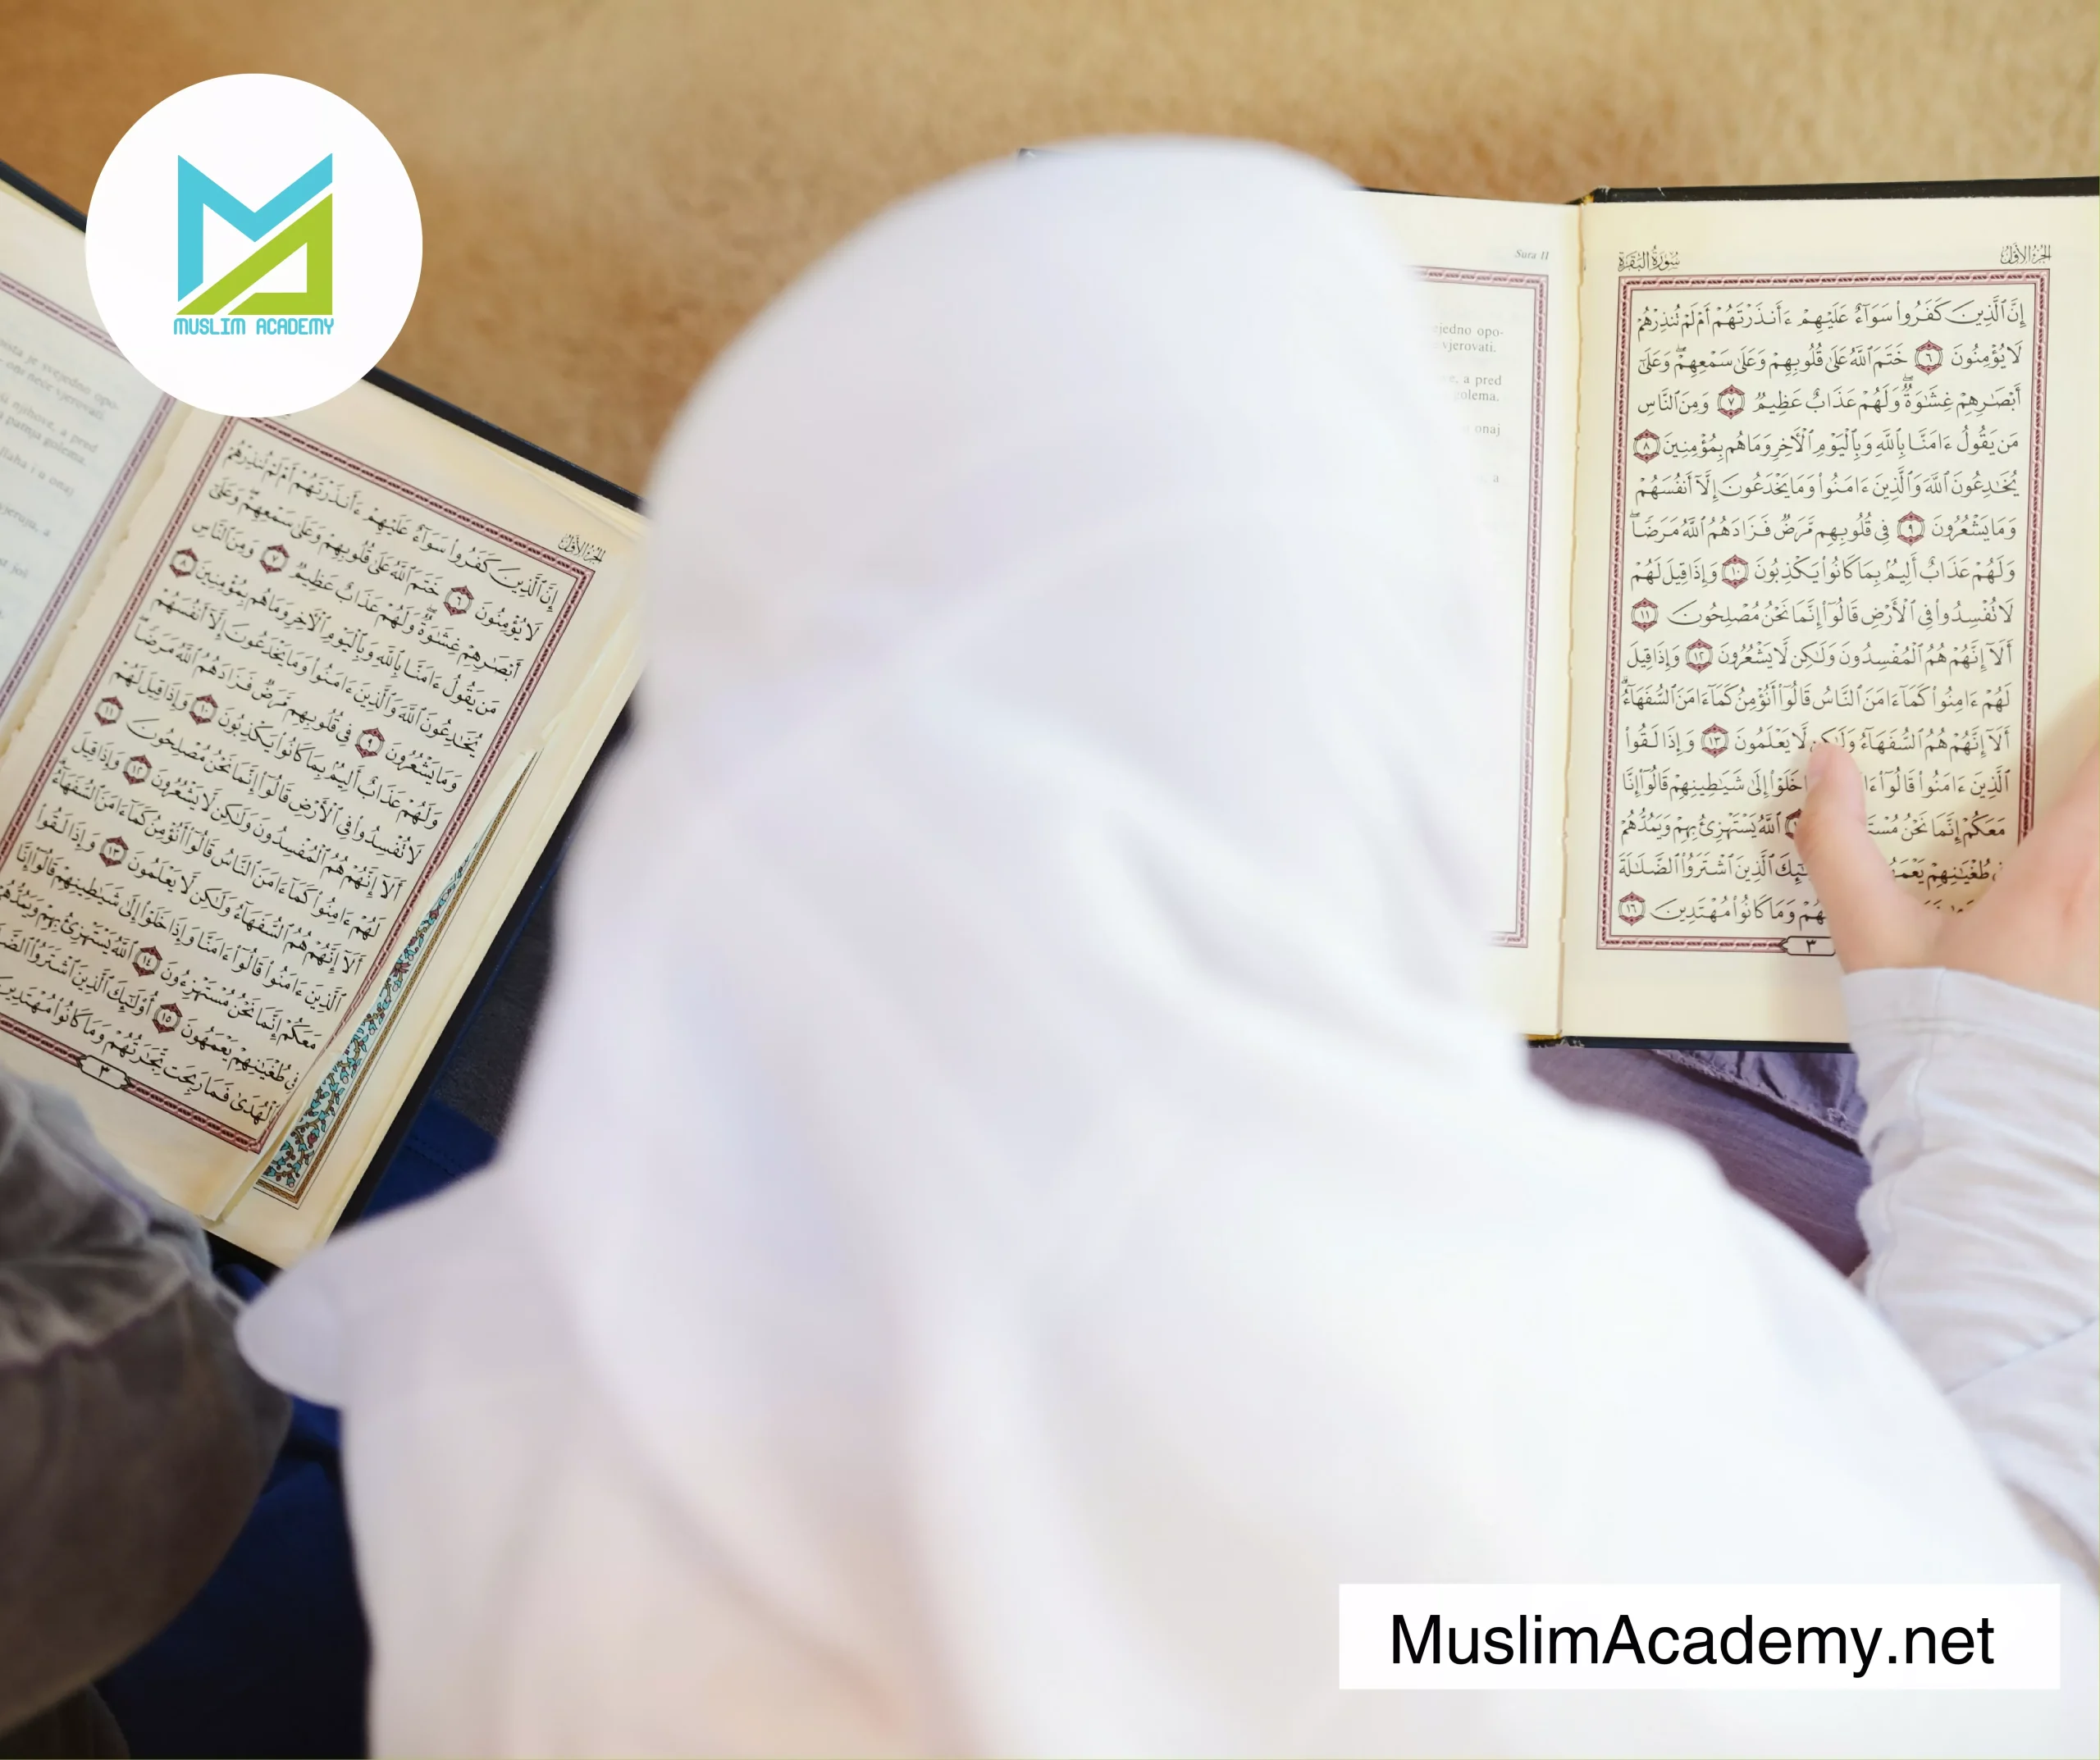 MUSLIM ACADEMY
الجزء الأول
إِنَّ ٱلَّذِينَ كَفَرُوا۟ سَوَآءٌ عَلَيْهِمْ ءَأَنذَرْتَهُمْ أَمْ لَمْ تُنذِرْهُمْ
لَا يُؤْمِنُونَ ٦ خَتَمَ ٱللَّهُ عَلَىٰ قُلُوبِهِمْ وَعَلَىٰ سَمْعِهِمْ ۖ وَعَلَىٰٓ
أَبْصَـٰرِهِمْ غِشَـٰوَةٌ ۖ وَلَهُمْ عَذَابٌ عَظِيمٌ ٧ وَمِنَ ٱلنَّاسِ
مَن يَقُولُ ءَامَنَّا بِٱللَّهِ وَبِٱلْيَوْمِ ٱلْـَٔاخِرِ وَمَا هُم بِمُؤْمِنِينَ ٨
يُخَـٰدِعُونَ ٱللَّهَ وَٱلَّذِينَ ءَامَنُوا۟ وَمَا يَخْدَعُونَ إِلَّآ أَنفُسَهُمْ
وَمَا يَشْعُرُونَ ٩ فِى قُلُوبِهِم مَّرَضٌ فَزَادَهُمُ ٱللَّهُ مَرَضًا ۖ
وَلَهُمْ عَذَابٌ أَلِيمٌۢ بِمَا كَانُوا۟ يَكْذِبُونَ ١٠ وَإِذَا قِيلَ لَهُمْ
لَا تُفْسِدُوا۟ فِى ٱلْأَرْضِ قَالُوٓا۟ إِنَّمَا نَحْنُ مُصْلِحُونَ ١١
أَلَآ إِنَّهُمْ هُمُ ٱلْمُفْسِدُونَ وَلَـٰكِن لَّا يَشْعُرُونَ ١٢ وَإِذَا قِيلَ
لَهُمْ ءَامِنُوا۟ كَمَآ ءَامَنَ ٱلنَّاسُ قَالُوٓا۟ أَنُؤْمِنُ كَمَآ ءَامَنَ ٱلسُّفَهَآءُ ۗ
أَلَآ إِنَّهُمْ هُمُ ٱلسُّفَهَآءُ وَلَـٰكِن لَّا يَعْلَمُونَ ١٣ وَإِذَا لَقُوا۟
ٱلَّذِينَ ءَامَنُوا۟ قَالُوٓا۟ ءَامَنَّا وَإِذَا خَلَوْا۟ إِلَىٰ شَيَـٰطِينِهِمْ قَالُوٓا۟ إِنَّا
مَعَكُمْ إِنَّمَا نَحْنُ مُسْتَهْزِءُونَ ١٤ ٱللَّهُ يَسْتَهْزِئُ بِهِمْ وَيَمُدُّهُمْ
فِى طُغْيَـٰنِهِمْ يَعْمَهُونَ ١٥ أُو۟لَـٰٓئِكَ ٱلَّذِينَ ٱشْتَرَوُا۟
ٱلْهُدَىٰ فَمَا رَبِحَت تِّجَـٰرَتُهُمْ وَمَا كَانُوا۟ مُهْتَدِينَ
٣
Sura II
opo-
vjerovati.
a pred
golema.
onaj
a
سورة البقرة الجزء الأول
إِنَّ ٱلَّذِينَ كَفَرُوا۟ سَوَآءٌ عَلَيْهِمْ ءَأَنذَرْتَهُمْ أَمْ لَمْ تُنذِرْهُمْ
لَا يُؤْمِنُونَ ٦ خَتَمَ ٱللَّهُ عَلَىٰ قُلُوبِهِمْ وَعَلَىٰ سَمْعِهِمْ ۖ وَعَلَىٰٓ
أَبْصَـٰرِهِمْ غِشَـٰوَةٌ ۖ وَلَهُمْ عَذَابٌ عَظِيمٌ ٧ وَمِنَ ٱلنَّاسِ
مَن يَقُولُ ءَامَنَّا بِٱللَّهِ وَبِٱلْيَوْمِ ٱلْـَٔاخِرِ وَمَا هُم بِمُؤْمِنِينَ ٨
يُخَـٰدِعُونَ ٱللَّهَ وَٱلَّذِينَ ءَامَنُوا۟ وَمَا يَخْدَعُونَ إِلَّآ أَنفُسَهُمْ
وَمَا يَشْعُرُونَ ٩ فِى قُلُوبِهِم مَّرَضٌ فَزَادَهُمُ ٱللَّهُ مَرَضًا ۖ
وَلَهُمْ عَذَابٌ أَلِيمٌۢ بِمَا كَانُوا۟ يَكْذِبُونَ ١٠ وَإِذَا قِيلَ لَهُمْ
لَا تُفْسِدُوا۟ فِى ٱلْأَرْضِ قَالُوٓا۟ إِنَّمَا نَحْنُ مُصْلِحُونَ ١١
أَلَآ إِنَّهُمْ هُمُ ٱلْمُفْسِدُونَ وَلَـٰكِن لَّا يَشْعُرُونَ ١٢ وَإِذَا قِيلَ
لَهُمْ ءَامِنُوا۟ كَمَآ ءَامَنَ ٱلنَّاسُ قَالُوٓا۟ أَنُؤْمِنُ كَمَآ ءَامَنَ ٱلسُّفَهَآءُ ۗ
أَلَآ إِنَّهُمْ هُمُ ٱلسُّفَهَآءُ وَلَـٰكِن لَّا يَعْلَمُونَ ١٣ وَإِذَا لَقُوا۟
ٱلَّذِينَ ءَامَنُوا۟ قَالُوٓا۟ خَلَوْا۟ إِلَىٰ شَيَـٰطِينِهِمْ قَالُوٓا۟ إِنَّا
مَعَكُمْ إِنَّمَا نَحْنُ ٱللَّهُ يَسْتَهْزِئُ بِهِمْ وَيَمُدُّهُمْ
طُغْيَـٰنِهِمْ ٱلَّذِينَ ٱشْتَرَوُا۟ ٱلضَّلَـٰلَةَ
وَمَا كَانُوا۟ مُهْتَدِينَ ١٦
٣
MuslimAcademy.net